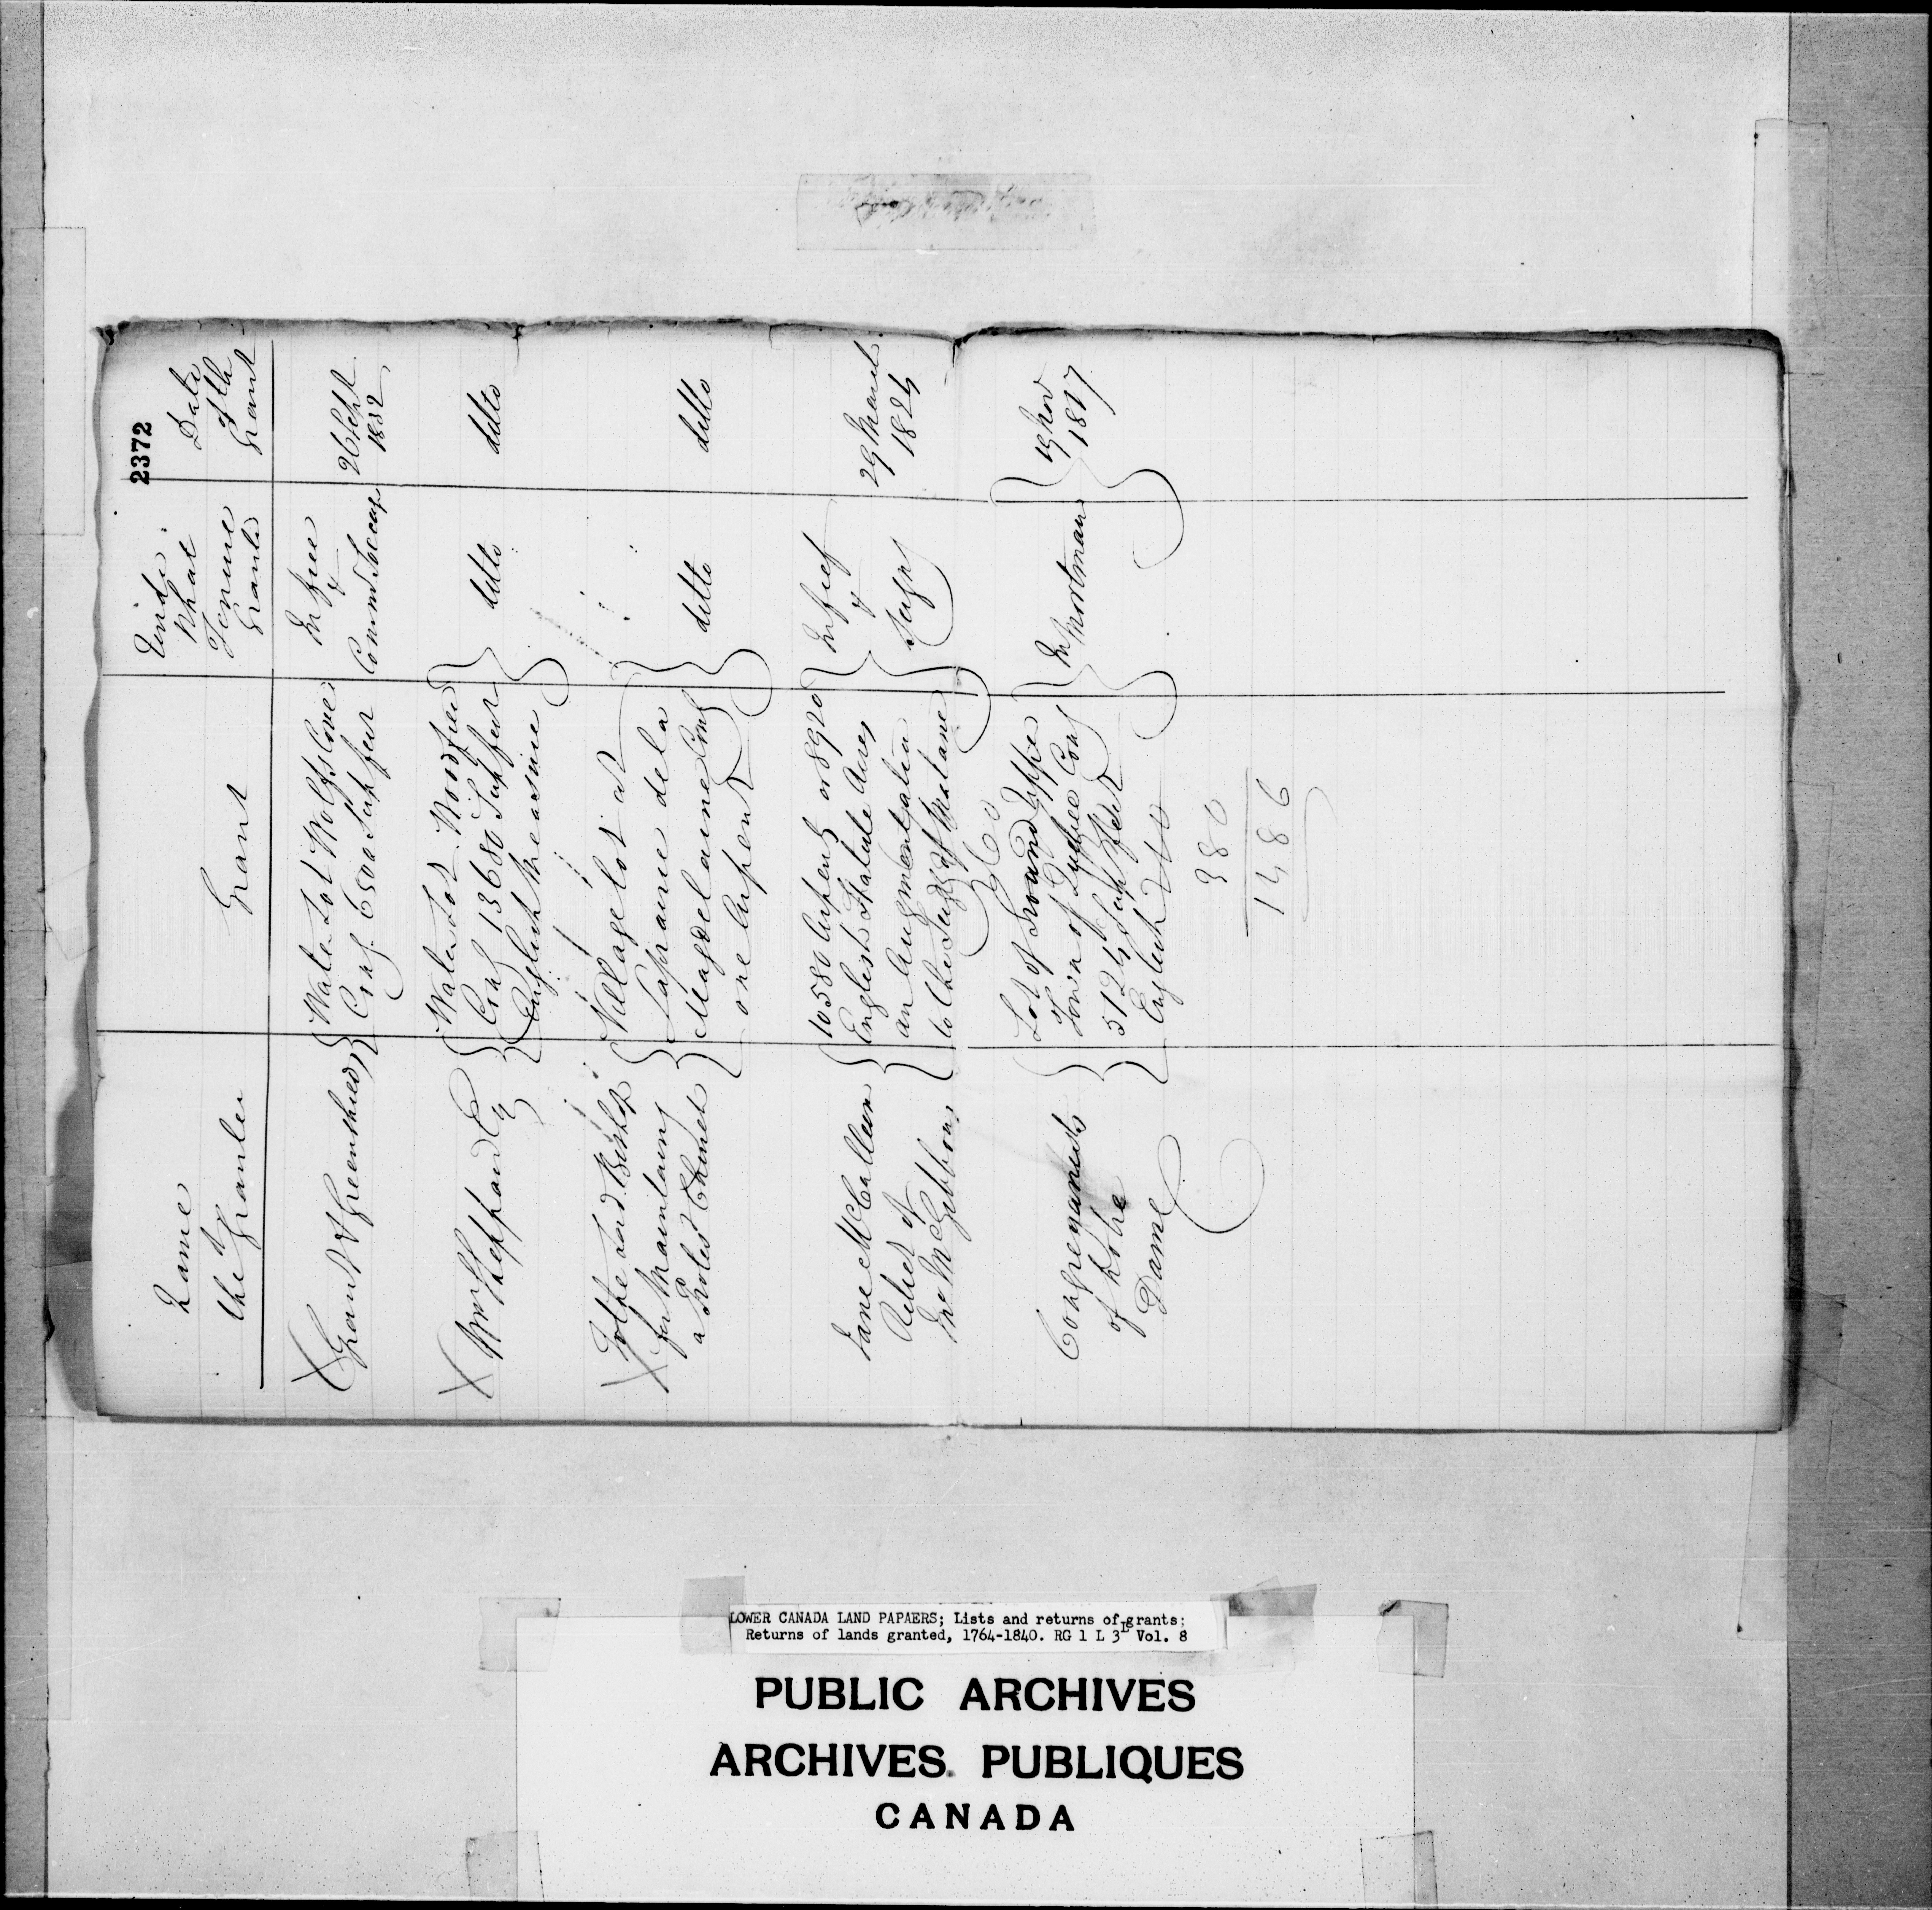 2372
Name
of
the Grantee
Grant
Under
What
Tenure
Granted
Date
of the
Grant
X Grant & Greenshields
Water Lot Wolfs Cove
Cong. 6500 Sup feet
In free
&
Common Soccage
26 Sept
1832
X Wm Sheppard
Water Lot Woodfield
Cong 13680 Sup feet
English Measure
ditto
ditto
To the Lord Bishop
X for Maintaing
a Protest Church
Village lot at
Laprairie de la
Magdelaine Cong
one Arpent
ditto
ditto
Jane McCallum
Relict of
Jno McGibbon
10580 Arpents or 8920
English Statute Acres
an Augmentation
to the Seigy of Matane
In fief
&
Seigny
29 March
1824
Congreganists
of Notre
Dame
Lot of Ground Upper
Town of Quebec Cong
5124 Sup Feet
English
In Mortmain
19 Nov
1817
380
1486
LOWER CANADA LAND PAPAERS; Lists and returns of grants;
Returns of lands granted, 1764-1840. RG 1 L 3L Vol. 8
PUBLIC ARCHIVES
ARCHIVES PUBLIQUES
CANADA